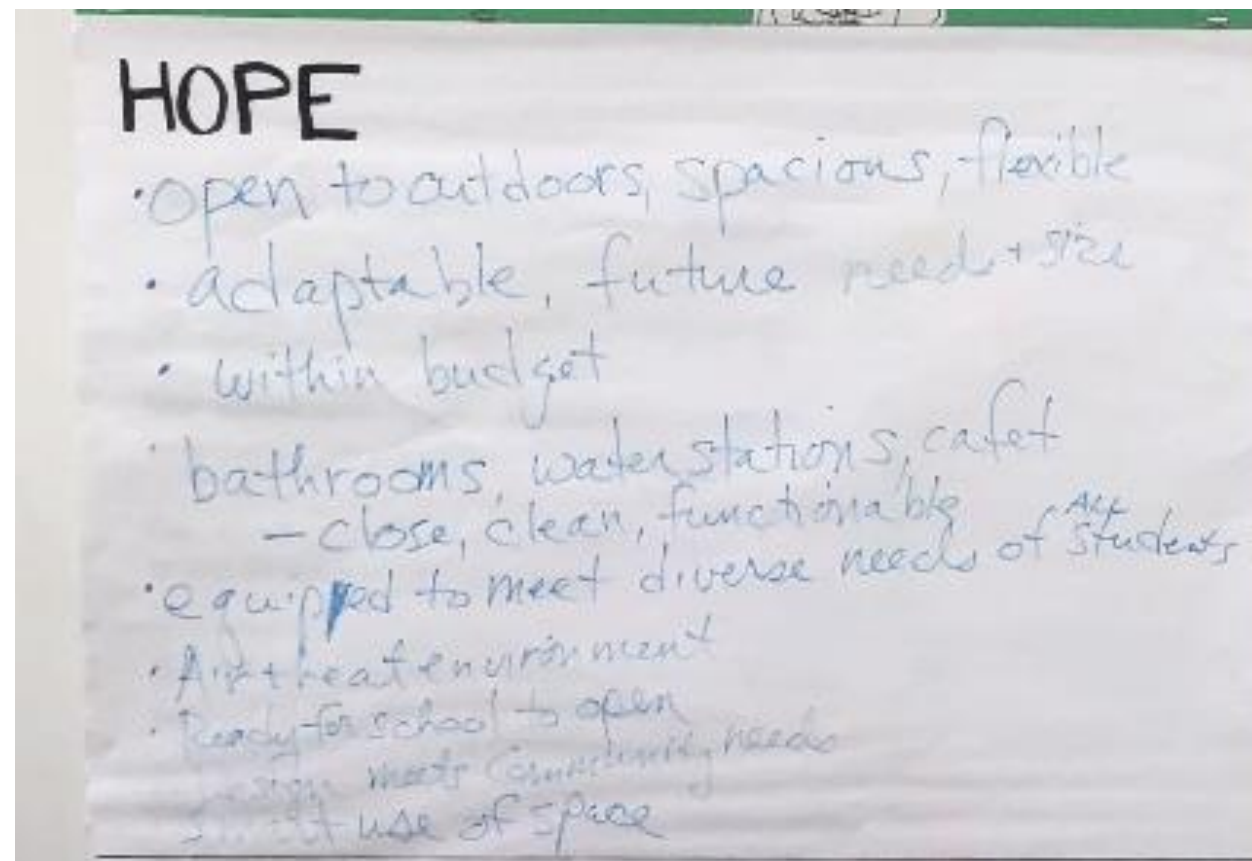 HOPE
•open to outdoors, spacious, flexible
• adaptable, future needs + size
• within budget
• bathrooms, water stations, cafet
- close, clean, functionable
•equipped to meet diverse needs of ALL students
• Air + heat environment
• Ready for school to open
Design meets Community needs
use of space